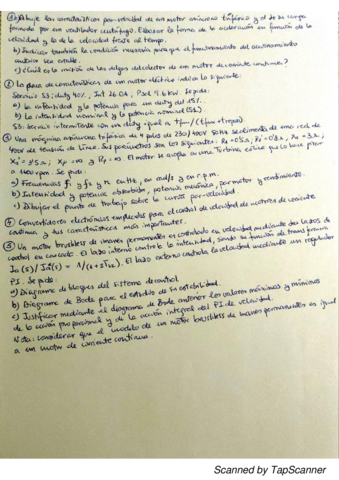 1) a) Dibuje las características par-velocidad de un motor asíncrono trifásico y el de su carga
formado por un ventilador centrífugo. Elaborar la forma de la aceleración en función de la
velocidad y la de la velocidad frente al tiempo.
b) Indicar también la condición necesaria para que el funcionamiento del accionamiento
motórico sea estable.
c) ¿Cuál es la misión de las delgas del colector de un motor de corriente continua?
2) La placa de características de un motor eléctrico indica lo siguiente:
Servicio S3; duty 40%, Int 26 A, Psal 9.6 kW. Se pide:
a) La intensidad y la potencia para un duty del 25%.
b) La intensidad nominal y la potencia nominal (S1).
S3: Servicio intermitente con un duty igual a tfun/(tfun+treposo)
3) Una máquina asíncrona trifásica de 4 polos de 230/400V 50Hz se alimenta de una red de
400V de tensión de línea. Sus parámetros son los siguientes:
El motor se acopla a una Turbina, eólica que la hace girar
a 1600 rpm. Se pide:
a) Frecuencias f1 y f2 y n en Hz, en rad/s y en r.p.m.
b) Intensidad y potencia absorbida, potencia mecánica, par motor y rendimiento.
c) Dibujar el punto de trabajo sobre la curva par-velocidad.
4) Convertidores electrónicos empleados para el control de velocidad de motores de corriente
continua y sus características más importantes.
5) Un motor brushless de imanes permanentes es controlado en velocidad mediante dos lazos de
control en cascada. El lazo interno controla la intensidad, siendo su función de transferencia
El lazo externo controla la velocidad mediante un regulador
PI. Se pide:
a) Diagrama de bloques del sistema de control.
b) Diagrama de Bode para el estudio de su estabilidad.
c) Justificar mediante el diagrama de Bode anterior los valores máximos y mínimos
de la acción proporcional y de la acción integral del PI de velocidad.
Nota: considerar que el modelo de un motor brushless de imanes permanentes es igual
a un motor de corriente continua.
Scanned by TapScanner